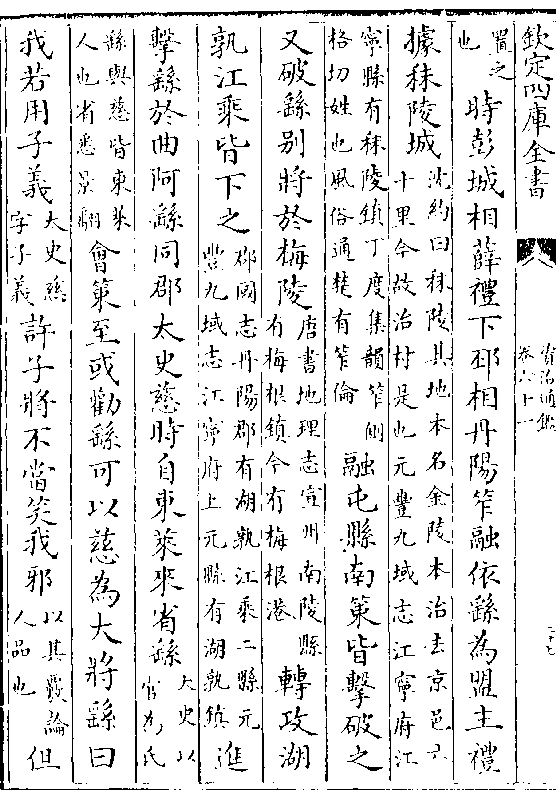 欽定四庫全書 資治通鑑 卷六十一
置之也時彭城相薛禮下邳相丹陽笮融依繇為盟主禮
據秣陵城沈約曰秣陵其地本名金陵本治去京邑六十里今故治村是也元豐九域志江寧府江
寧縣有秣陵鎮丁度集韻笮側格切姓也風俗通楚有笮倫融屯縣南策皆擊破之
又破繇别將於梅陵唐書地理志宣州南陵縣有梅根鎮今有梅根港轉攻湖
孰江乘皆下之郡國志丹陽郡有湖孰江乘二縣元豐九域志江寧府上元縣有湖孰鎮進
擊繇於曲阿繇同郡太史慈時自東萊來省繇大史以官為氏
繇與慈皆東萊人也省悉景翻會策至或勸繇可以慈為大將繇曰
我若用子義大史慈字子義許子將不當笑我邪以其覈論人品也但